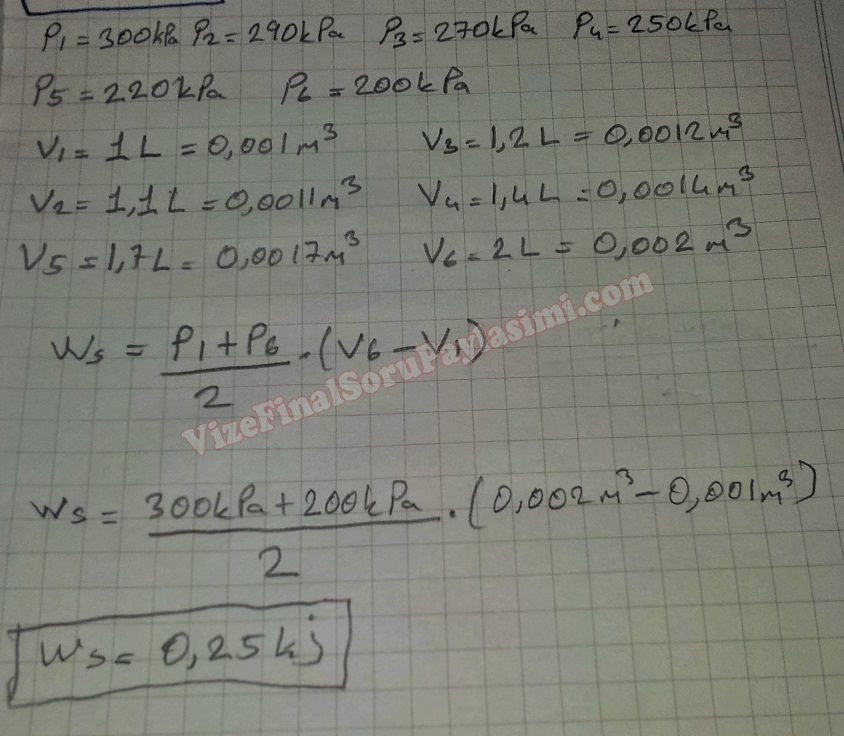 P1 = 300kPa P2 = 290kPa P3 = 270kPa P4 = 250kPa
P5 = 220kPa P6 = 200kPa
V1 = 1L = 0,001m³ V3 = 1,2L = 0,0012m³
V2 = 1,1L = 0,0011m³ V4 = 1,4L = 0,0014m³
V5 = 1,7L = 0,0017m³ V6 = 2L = 0,002m³
Ws = P1 + P6 / 2 . (V6 - V1)
VizeFinalSoruPaylasimi.com
Ws = 300kPa + 200kPa / 2 . (0,002m³ - 0,001m³)
Ws = 0,25kj